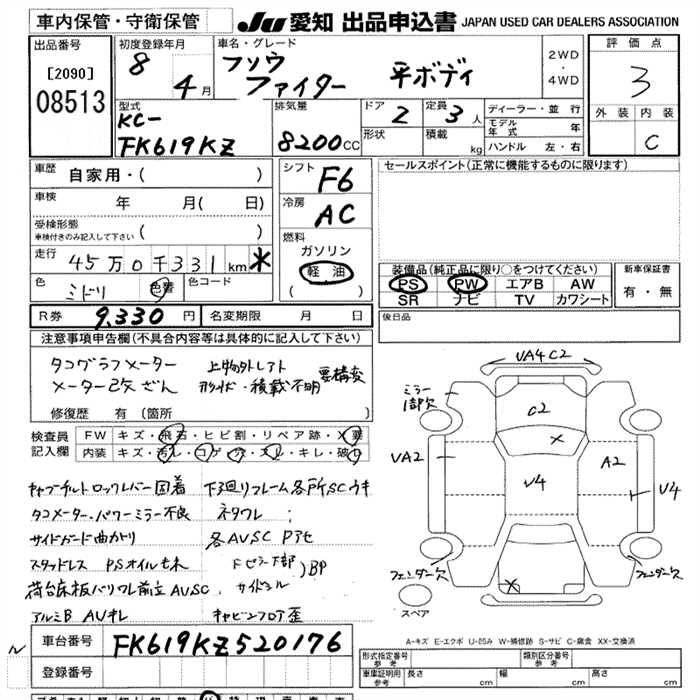 車内保管・守衛保管
JU 愛知 出品申込書 JAPAN USED CAR DEALERS ASSOCIATION
出品番号
[2090]
08513
初度登録年月
8
4月
車名・グレード
フソウ
ファイター 平ボディ
2WD
・
4WD
評価点
3
外装 内装
C
型式
KC-
FK619KZ
排気量
8200CC
ドア
2
形状
定員
3人
積載
kg
ディーラー・並行
モデル年式 年
ハンドル 左・右
車歴
自家用・( )
車検
年 月( 日)
受検形態
車検付きのみ記入して下さい
( )
走行
45万0千331km*
色
ミドリ
色替
色コード
シフト
F6
冷房
AC
燃料
ガソリン
軽油
( )
セールスポイント(正常に機能するものに限ります)
装備品(純正品に限り○をつけてください)
PS PW エアB AW
SR ナビ TV カワシート
新車保証書
有・無
後日品
R券 9,330円
名変期限 月 日
注意事項申告欄(不具合内容等は具体的に記入して下さい)
タコグラフメーター 上物外しアト 要構変
メーター改ざん 形状・積載不明
修復歴 有(箇所 )
検査員
記入欄
FW キズ・飛石・ヒビ割・リペア跡・X要
内装 キズ・汚レ・コゲ・穴・スレ・キレ・破レ
キャブチルトロックレバー固着 下廻リフレーム各所SCウキ
タコメーター、パワーミラー不良 ネタワレ
サイドガード曲がり 各AUSC Pアセ
スタッドレス PSオイルモレ Fピラー下部 )BP
荷台床板バリワレ前立AUSC サイドシル
アルミB AUキレ キャビンフロア歪
車台番号 FK619KZ520176
登録番号
VA4 C2
ミラー
1部欠
C2
X
VA2
V4
A2
V4
フェンダー欠
X
フェンダー欠
スペア
A-キズ E-エクボ U-凹み W-補修跡 S-サビ C-腐食 XX-交換済
形式指定番号
参考
類別区分番号
参考
車庫証明用
参考
長さ cm
幅 cm
高さ cm